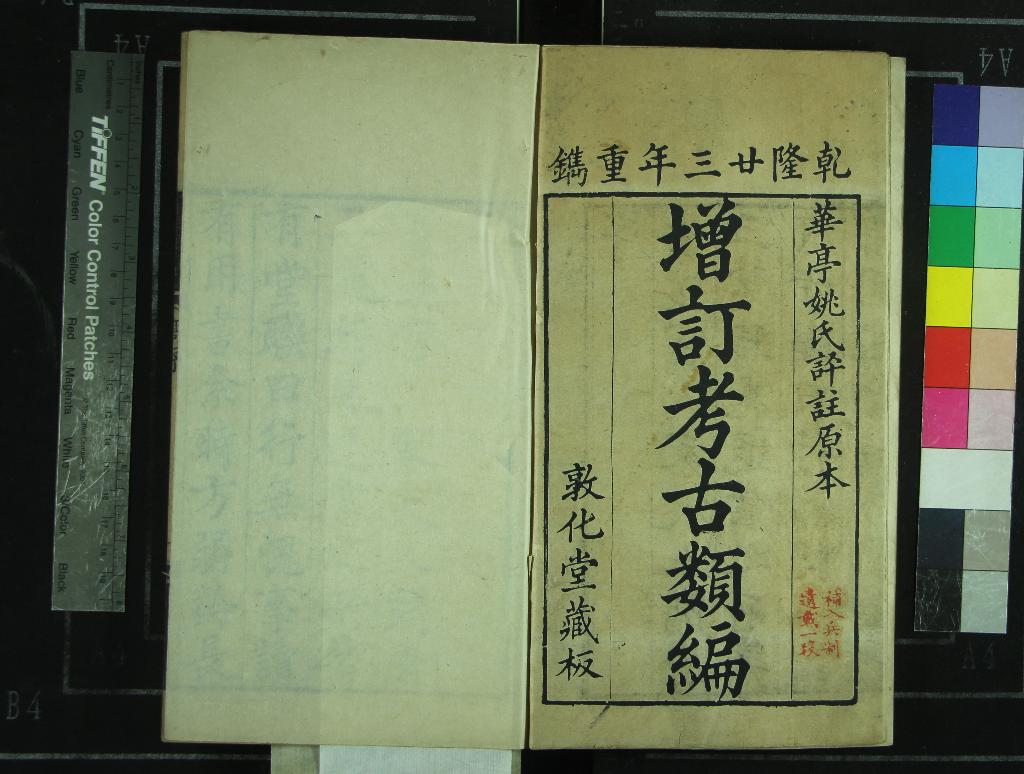 乾隆廿三年重鐫
華亭姚氏評註原本
補入兵制
遺載一段
增訂考古類編
敦化堂藏板
TIFFEN Color Control Patches
Blue
Cyan
Green
Yellow
Red
Magenta
White
3/Color
Black
Centimetres
Inches
A4
A4
A4
A4
B4